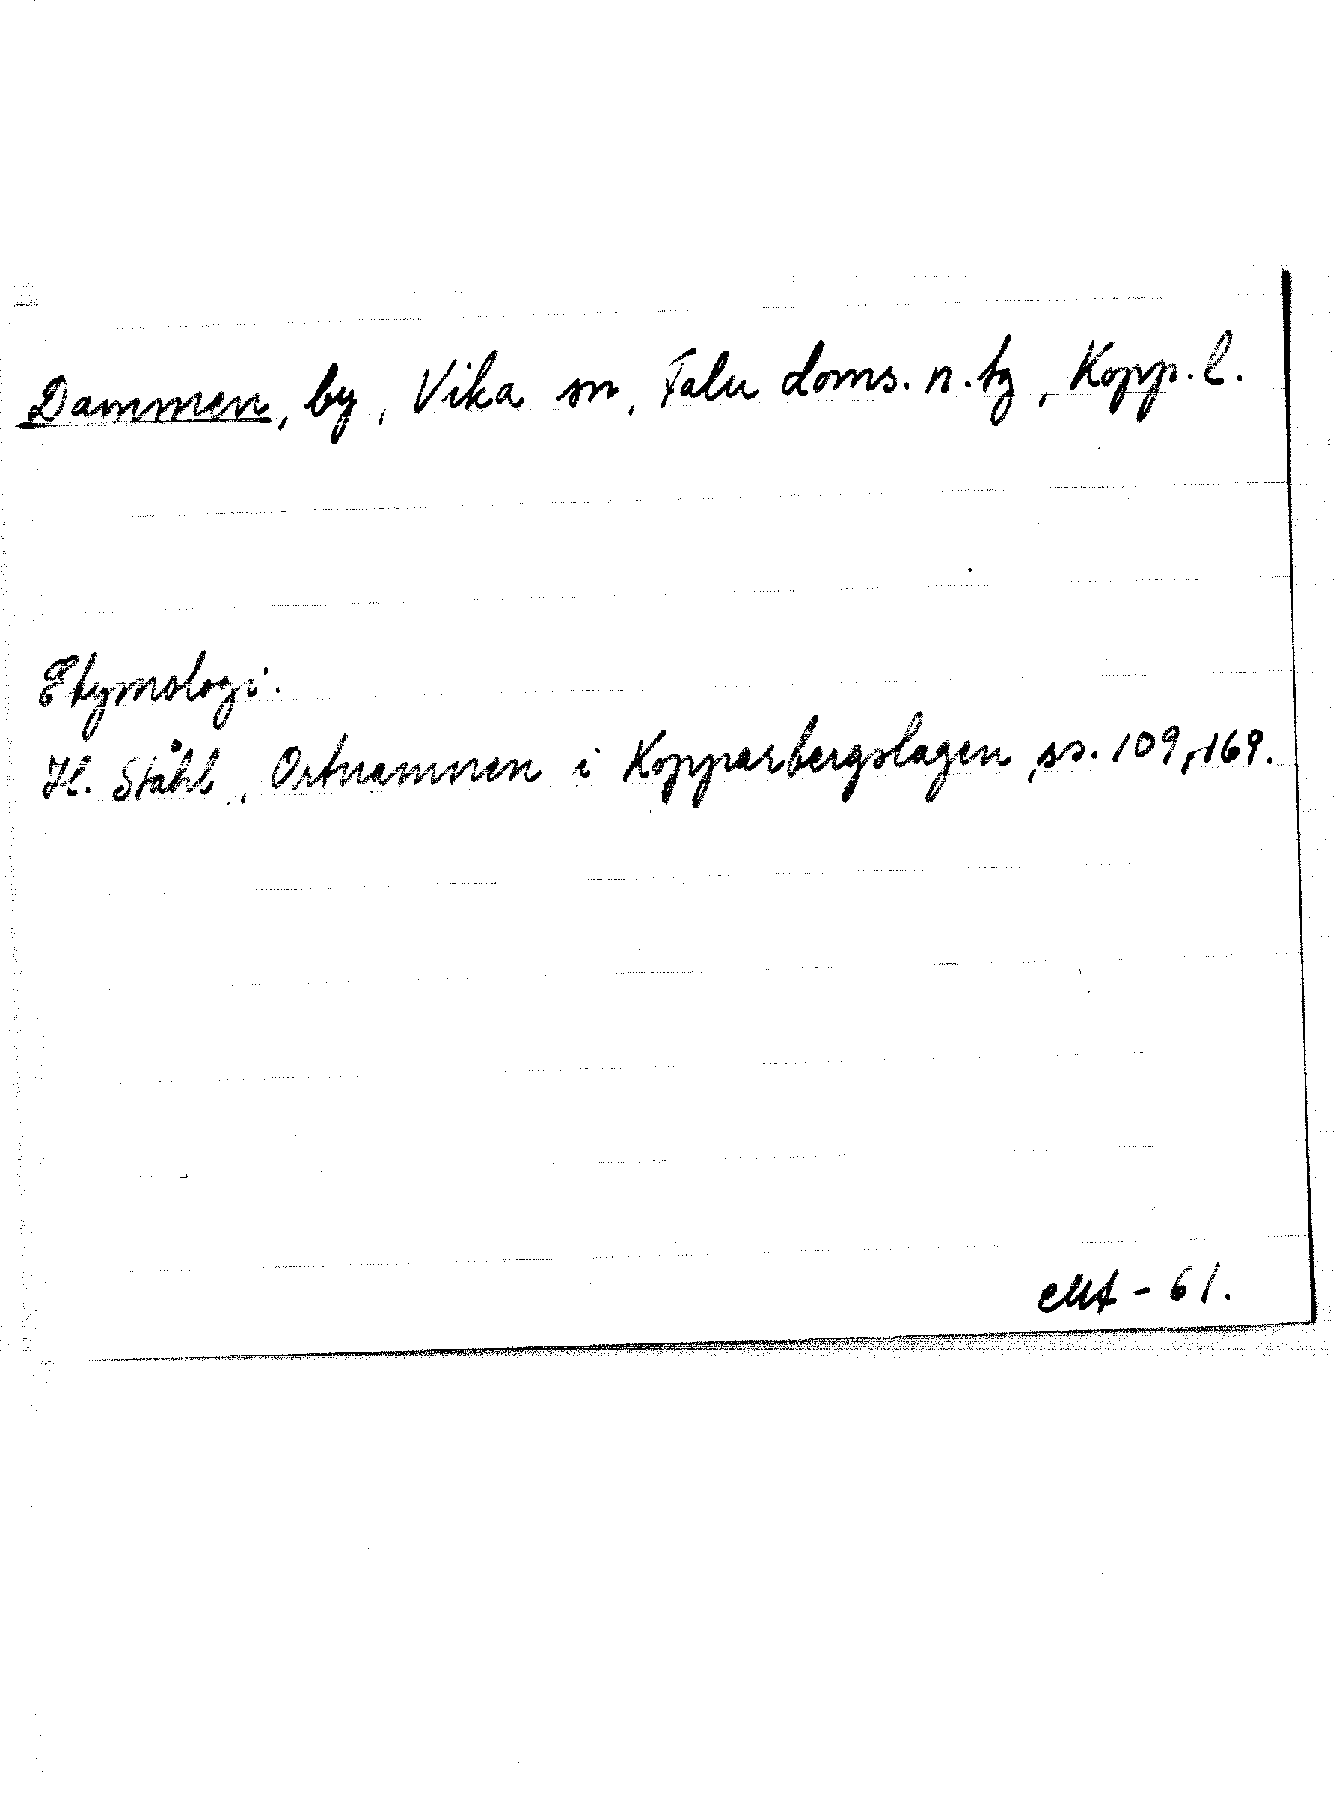 Dammen, by, Vika sn, Falu doms. n. tg, Kopp. l.
Etymologi.
H. Ståhl, Ortnamnen i Kopparbergslagen, ss. 109, 169.
- 61.